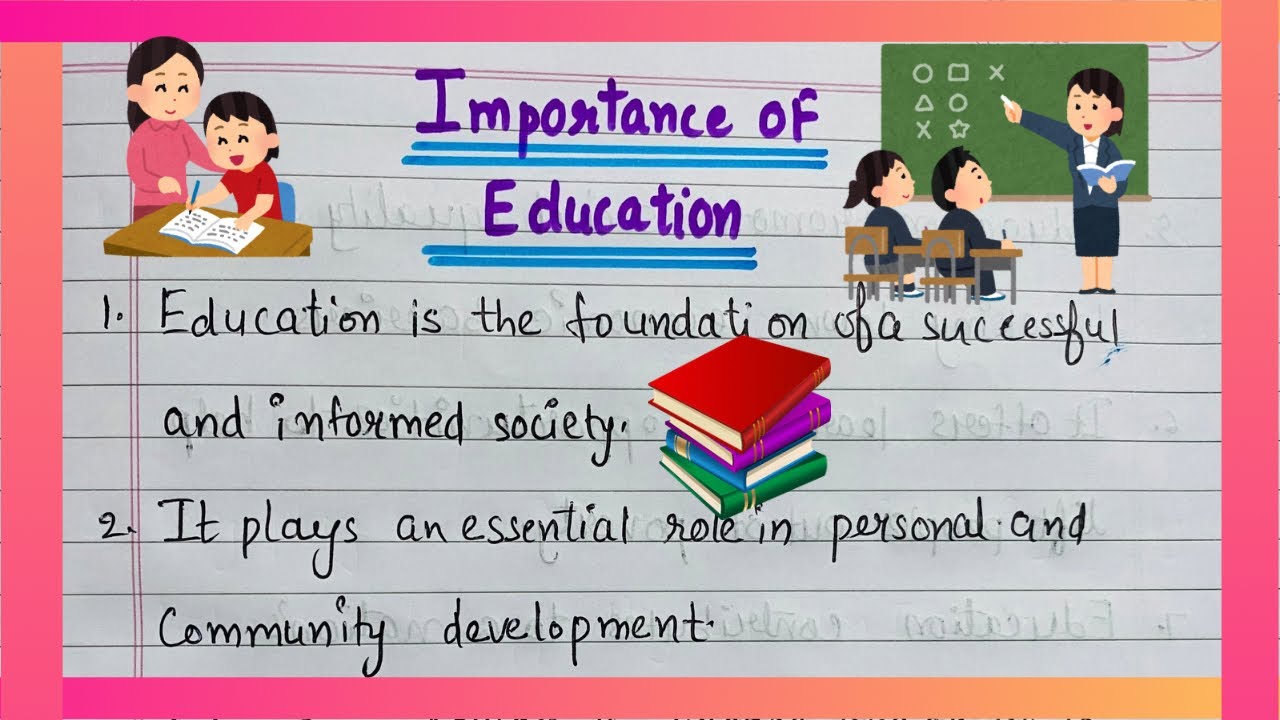 Importance of
Education
1. Education is the foundation of a successful
and informed society.
2. It plays an essential role in personal and
Community development.